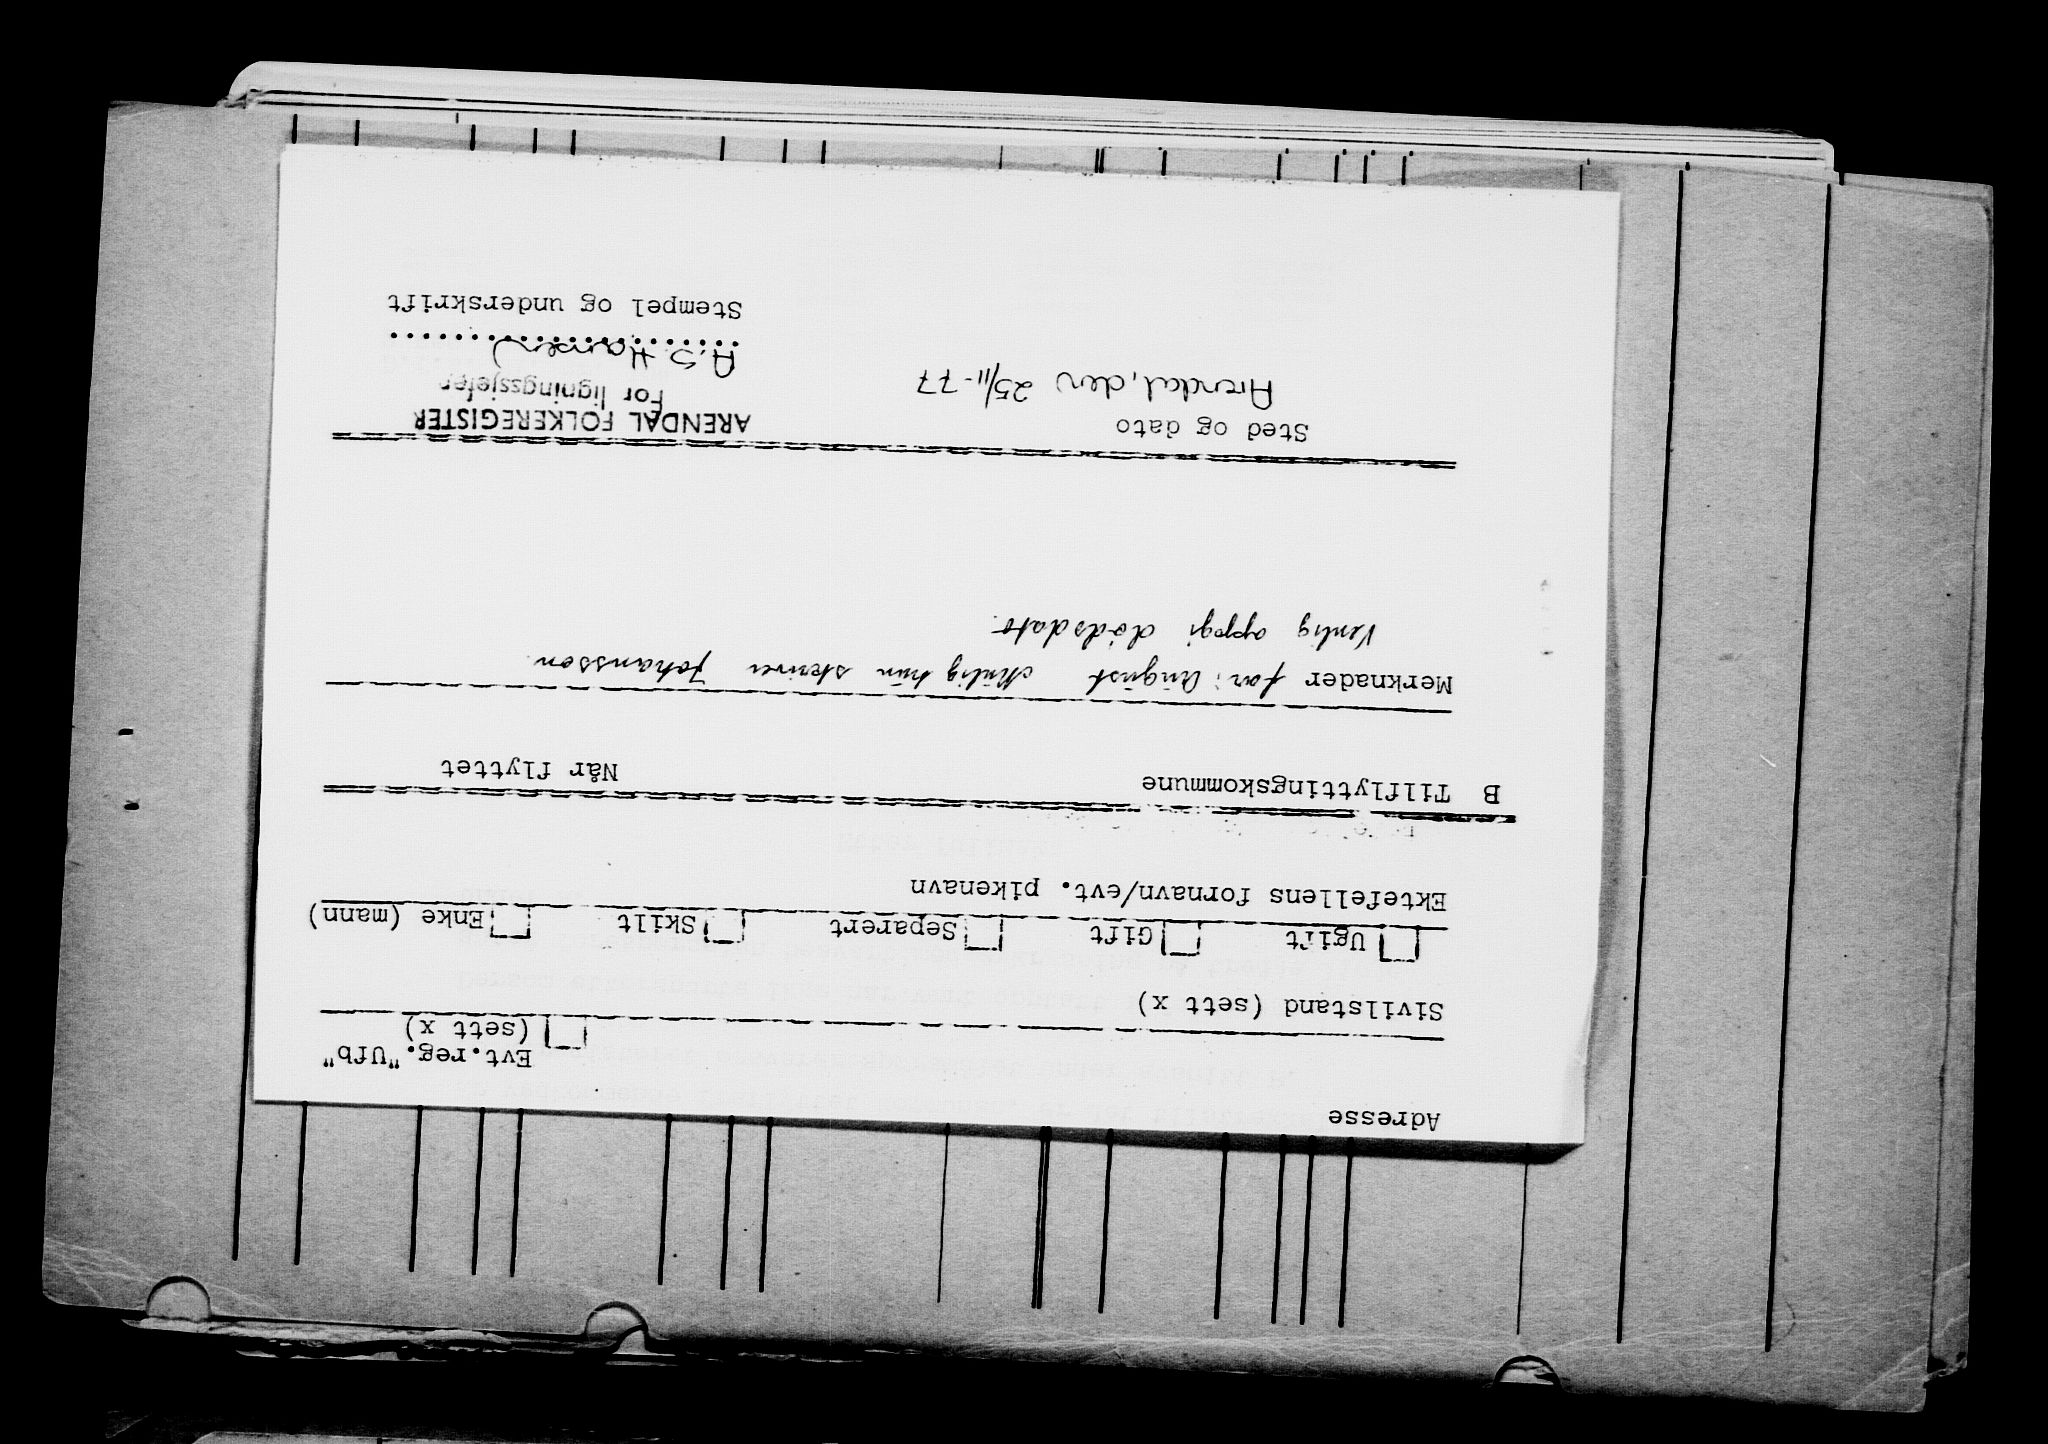 Adresse
Evt.reg."Ufb"
(sett x)
Sivilstand (sett x)
Ugift Gift Separert Skilt Enke (mann)
Ektefellens fornavn/evt. pikenavn
B Tilflyttingskommune Når flyttet
Merknader far: August Mulig hun skriver Johansson
Venlig oppgi dødsdato.
Sted og dato ARENDAL FOLKEREGISTER
For ligningssjefen
Arendal, den 25/11-77 A.S. Hansen
Stempel og underskrift